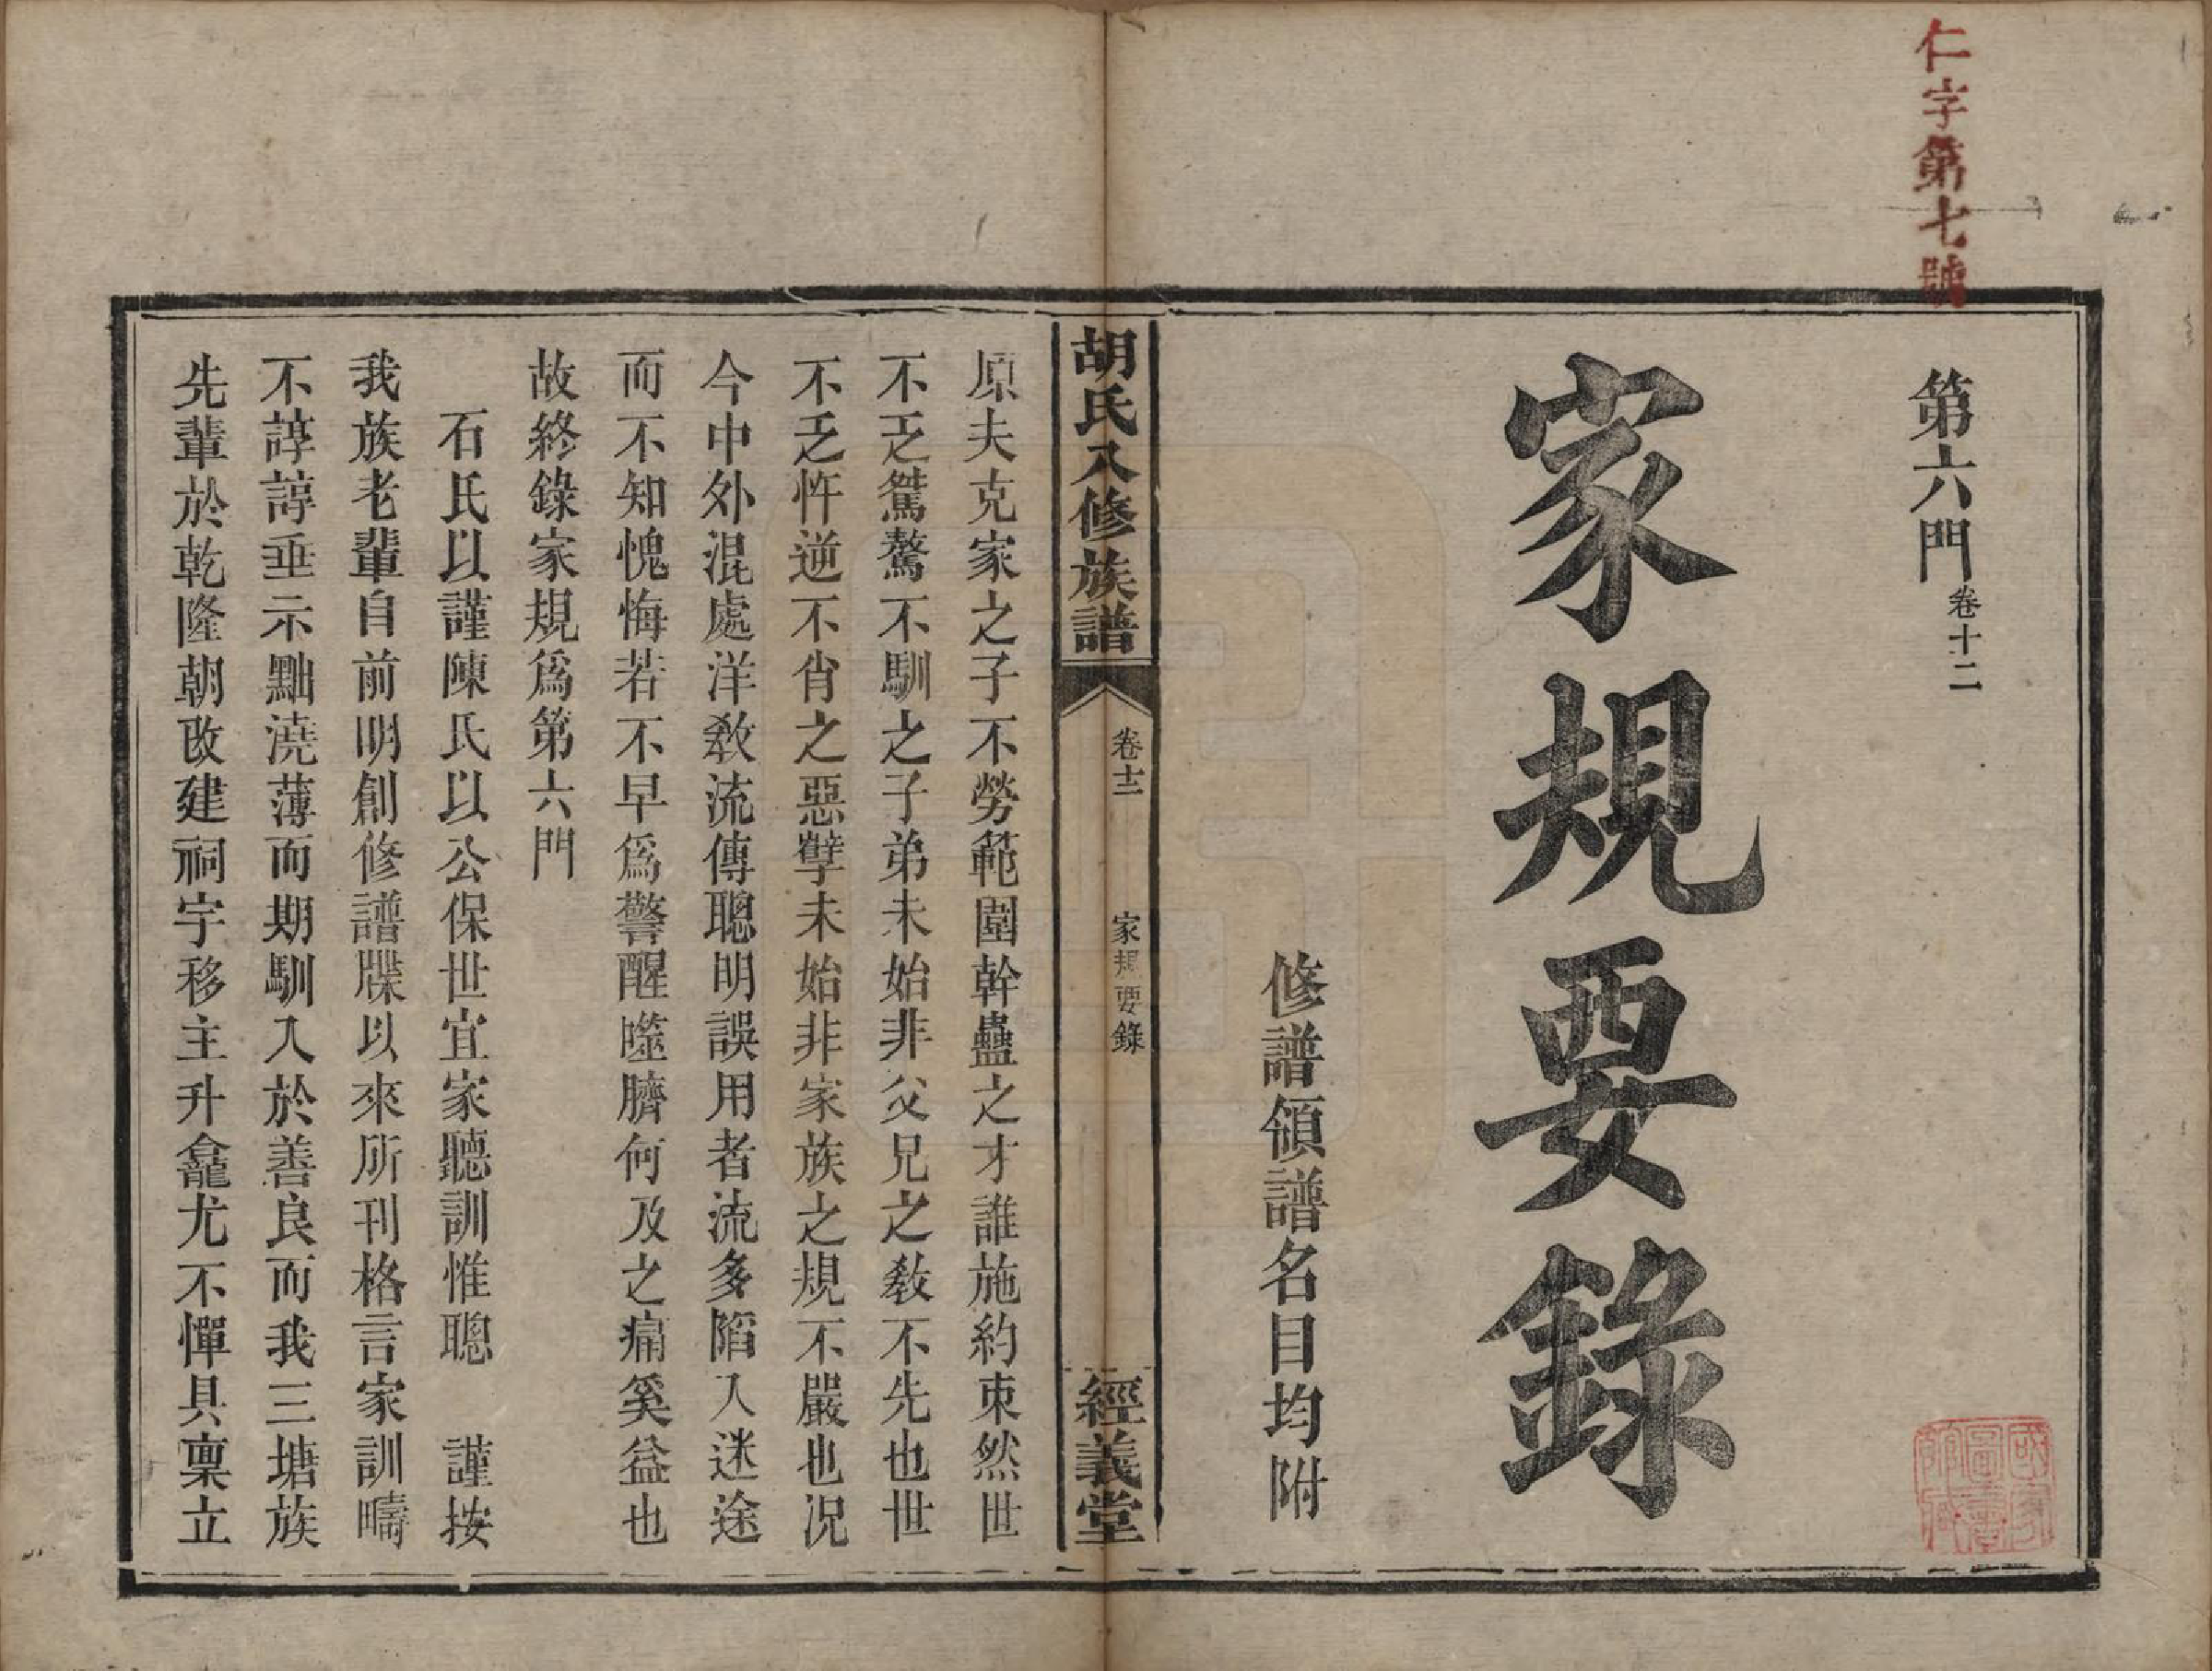 仁字第七號
第六門卷十二
家規要錄
修譜領譜名目均附
國家圖書館藏
胡氏八修族譜 卷十二 家規要錄 經義堂
原夫克家之子不勞範圍幹蠱之才誰施約束然世
不乏駕驁不馴之子弟未始非父兄之教不先也世
不乏忤逆不肖之惡孽未始非家族之規不嚴也況
今中外混處洋教流傳聰明誤用者流多陷入迷途
而不知愧悔若不早爲警醒噬臍何及之痛奚益也
故終錄家規爲第六門
石氏以謹陳氏以公保世宜家聽訓惟聰 謹按
我族老輩自前明創修譜牒以來所刊格言家訓疇
不諄諄垂示黜澆薄而期馴入於善良而我三塘族
先輩於乾隆朝改建祠宇移主升龕尤不憚具稟立